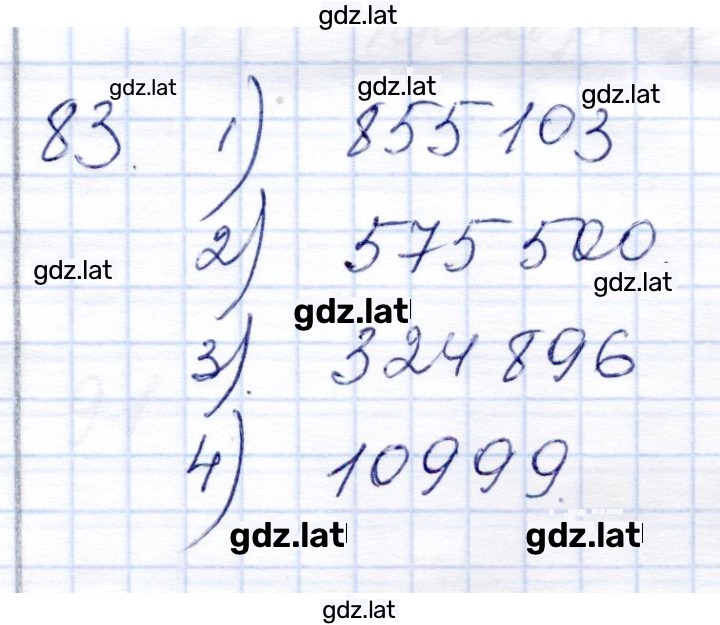 gdz.lat
gdz.lat gdz.lat gdz.lat
83. 1) 855 103
2) 575 500
gdz.lat gdz.lat
gdz.lat
3) 324 896
4) 10999
gdz.lat gdz.lat
gdz.lat